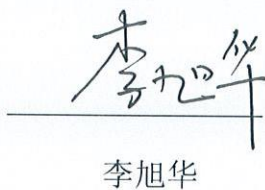 李旭华
李旭华